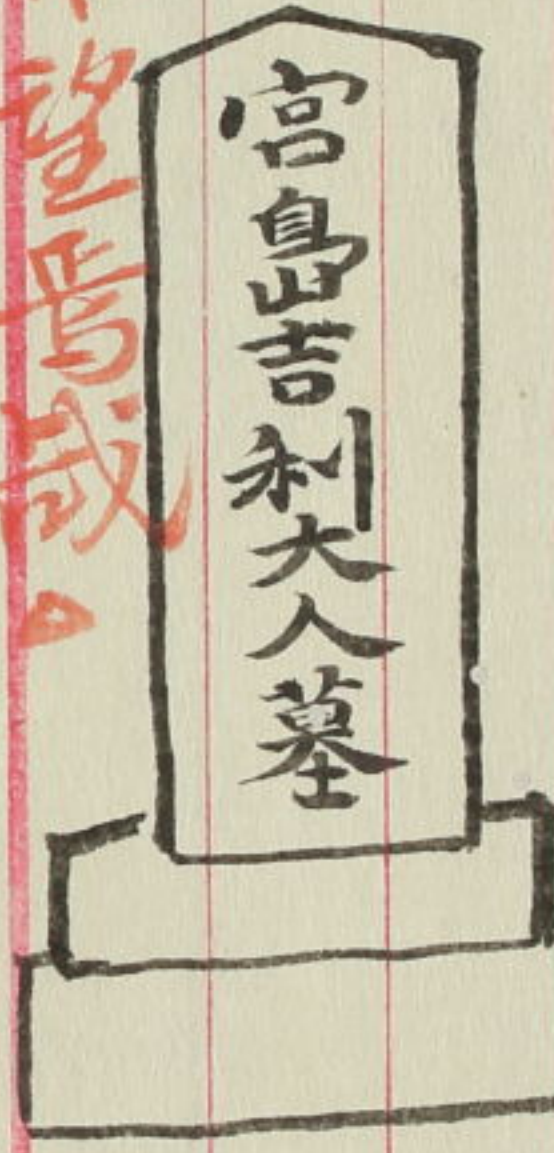 宮島吉利大人墓
望焉哉。